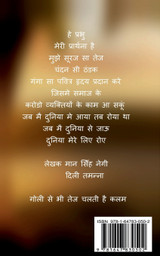 हे प्रभु
मेरी प्रार्थना है
मुझे सूरज सा तेज
चंदन सी ठंडक
गंगा सा पवित्र हृदय प्रदान करें
जिससे समाज के
करोडो व्यक्तियों के काम आ सकूं
जब मैं दुनिया मे आया तब रोया था
जब मैं दुनिया से जाऊ
दुनिया मेरे लिए रोए
लेखक मान सिंह नेगी
दिली तमन्ना
गोली से भी तेज चलती है कलम